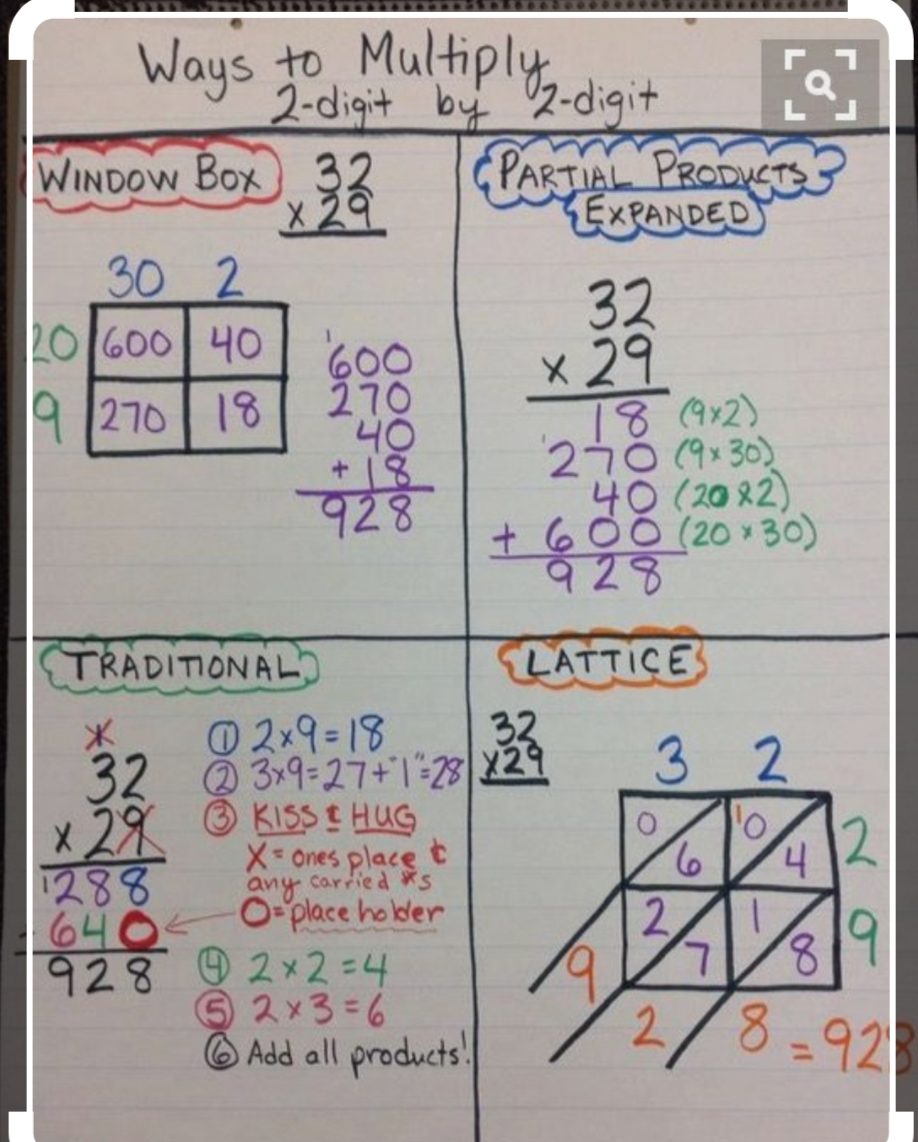 Ways to Multiply
2-digit by 2-digit
WINDOW BOX
32
x 29
30 2
20 600 40
9 270 18
1
600
270
40
+ 18
928
PARTIAL PRODUCTS
EXPANDED
32
x 29
18 (9x2)
1
270 (9x30)
40 (20x2)
+ 600 (20x30)
928
TRADITIONAL
1
32
x 29
1
288
640
928
① 2x9=18
② 3x9=27+"1"=28
③ KISS & HUG
X = ones place &
any carried #s
O = place holder
④ 2x2=4
⑤ 2x3=6
⑥ Add all products!
LATTICE
32
x29
3 2
1
0 6 0 4 2
2 7 1 8 9
9
2 8 = 928